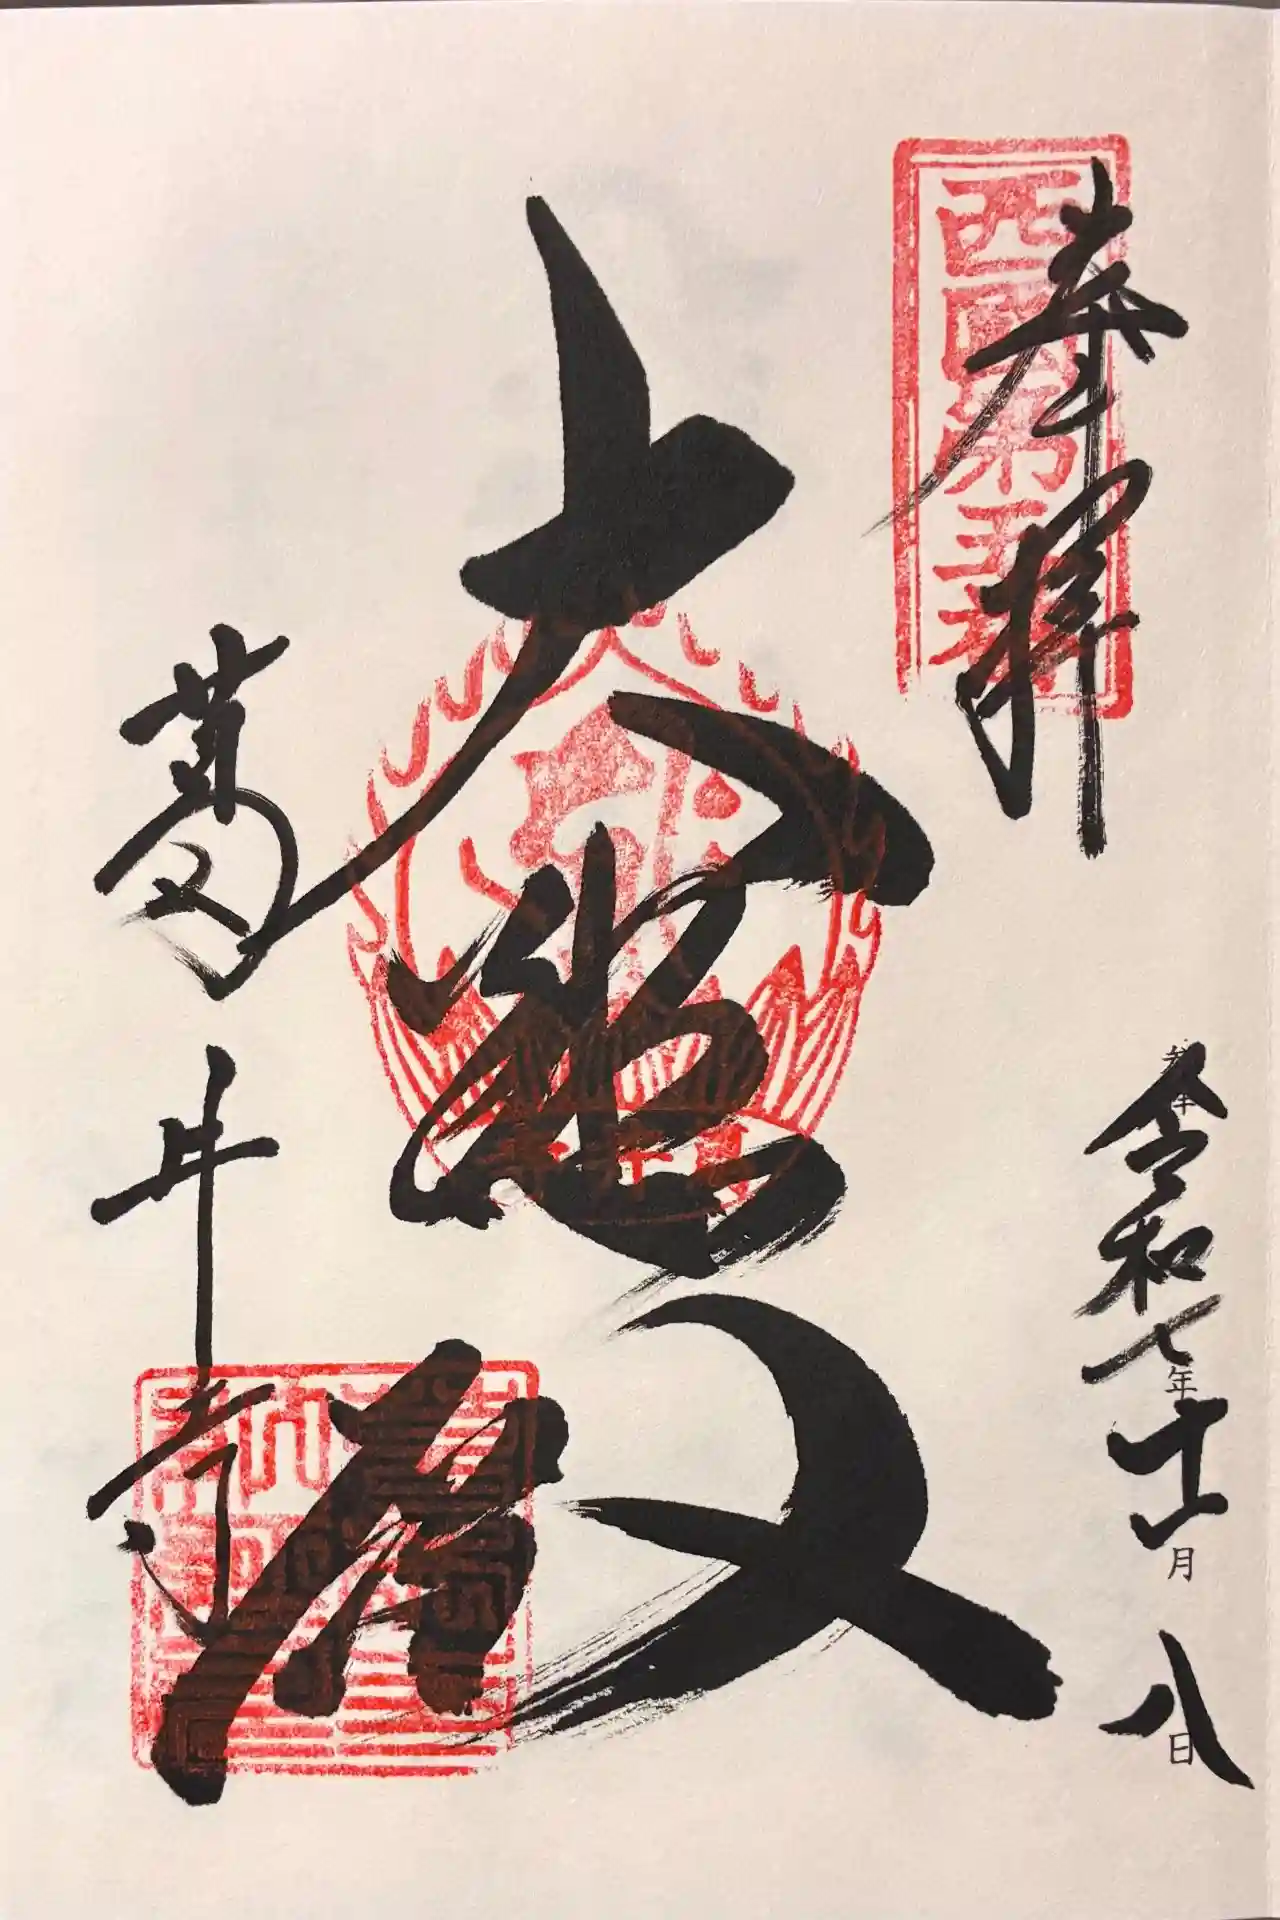 奉拝
西國第五番
令和七年十一月八日
大悲殿
葛井寺